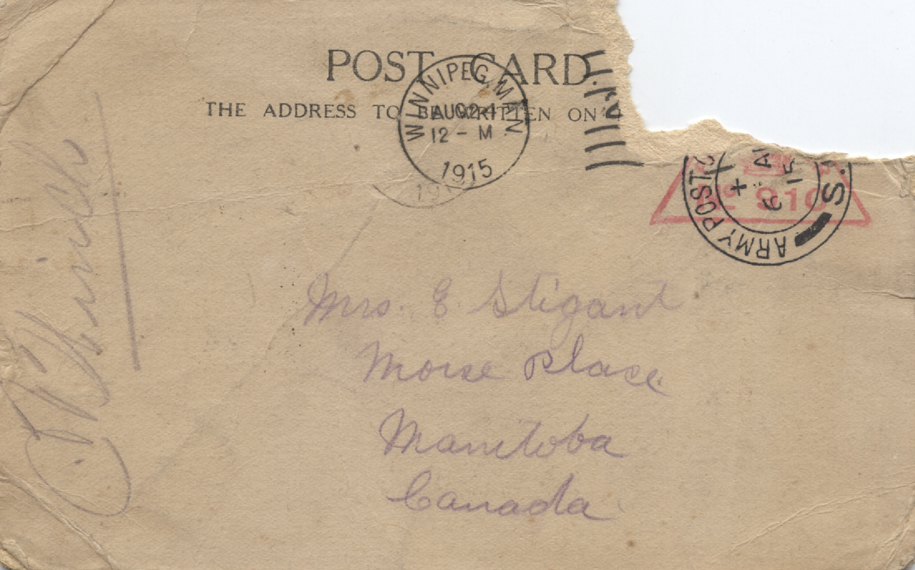 POST CARD
THE ADDRESS TO BE WRITTEN ON
WINNIPEG, MAN
AUG 24
12 - M
1915
ARMY POST
S.
910
Mrs. E Stigant
Moose Place
Manitoba
Canada